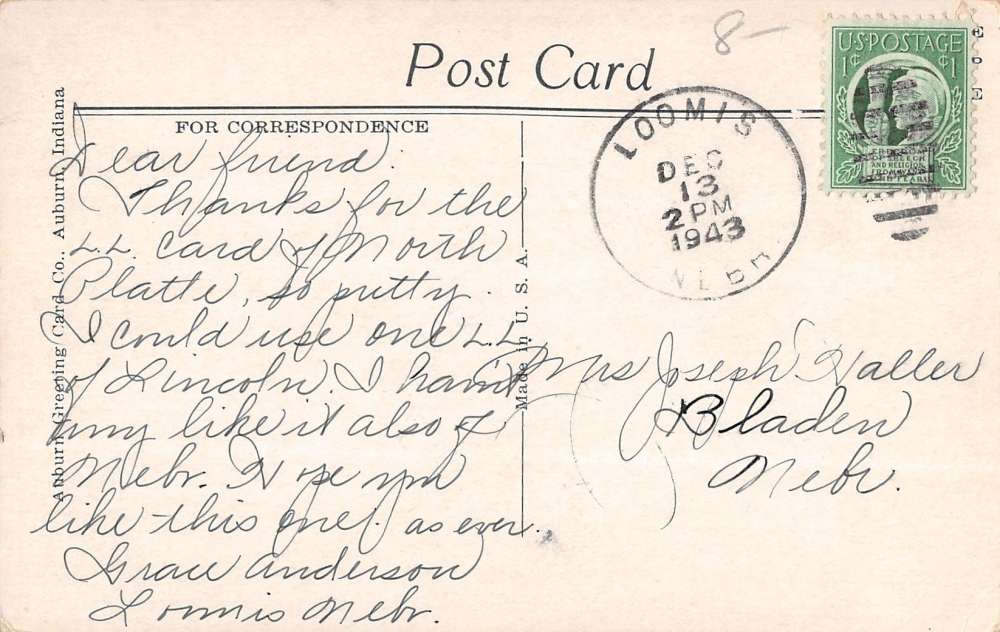 8-
Post Card
U.S. POSTAGE
1¢ 1¢
FREEDOM
OF SPEECH
AND RELIGION
FROM WANT
AND FEAR
LOOMIS
DEC
13
2 PM
1943
NEBR
FOR CORRESPONDENCE
Auburn Greeting Card Co., Auburn, Indiana
Made in U. S. A.
Dear friend.
Thanks for the
L.L. card of North
Platte, so pretty.
I could use one L.L.
of Lincoln. I havint
any like it also of
Nebr. Hope you
like this one. as ever.
Grace Anderson
Loomis Nebr.
Mrs Joseph Haller
Bladen
Nebr.